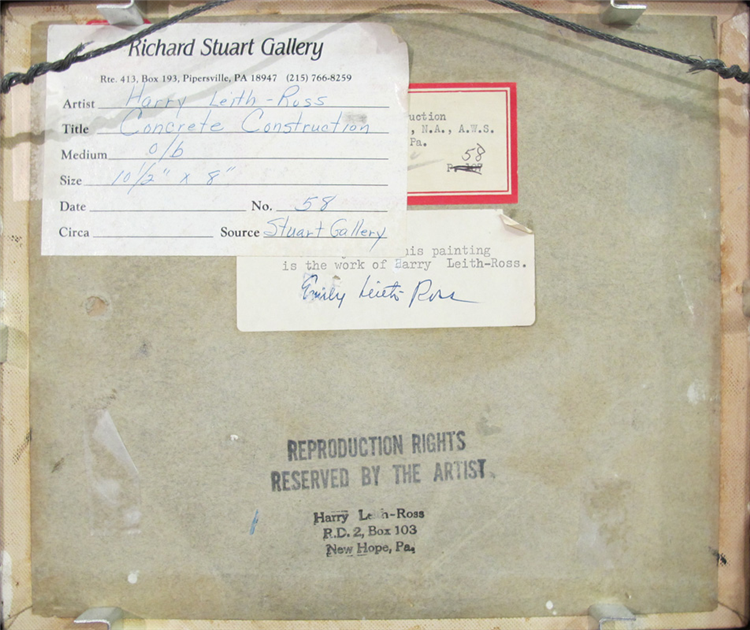 Richard Stuart Gallery
Rte. 413, Box 193, Pipersville, PA 18947 (215) 766-8259
Artist Harry Leith-Ross
Title Concrete Construction
Medium o/b
Size 10 1/2" x 8"
Date No. 58
Circa Source Stuart Gallery
uction
, N.A., A.W.S.
Pa.
58
his painting
is the work of Harry Leith-Ross.
Emily Leith Ross
REPRODUCTION RIGHTS
RESERVED BY THE ARTIST.
Harry Leith-Ross
R.D. 2, Box 103
New Hope, Pa.